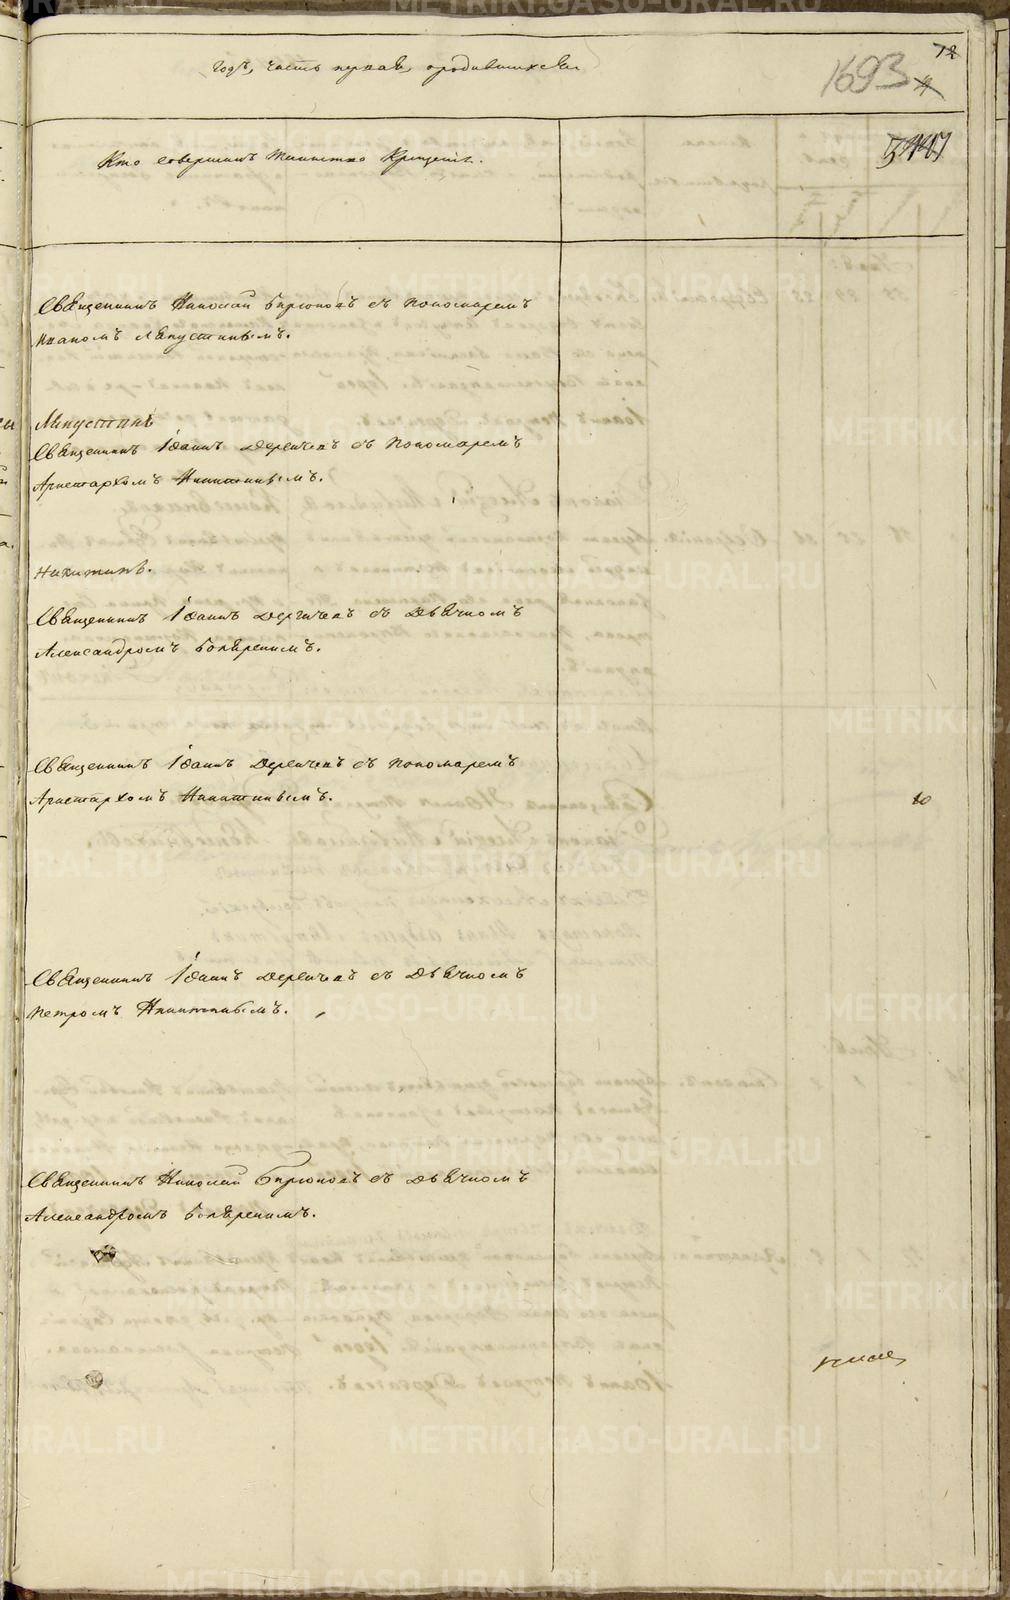 годъ, часть первая, о родившихся
1693
12
Кто совершалъ Таинство Крещенія.
Священникъ Николай Бирюковъ съ пономаремъ
Иваномъ Лапустинымъ.
Лапустинъ
Священникъ Іоаннъ Дергачевъ съ пономаремъ
Аристархомъ Никитинымъ.
Никитинъ.
Священникъ Іоаннъ Дергачевъ съ дьячкомъ
Александромъ Боярскимъ.
Священникъ Іоаннъ Дергачевъ съ пономаремъ
Аристархомъ Никитинымъ.
10
Священникъ Іоаннъ Дергачевъ съ дьячкомъ
Петромъ Никитинымъ.
Священникъ Николай Бирюковъ съ дьячкомъ
Александромъ Боярскимъ.
METRIKI.GASO-URAL.RU